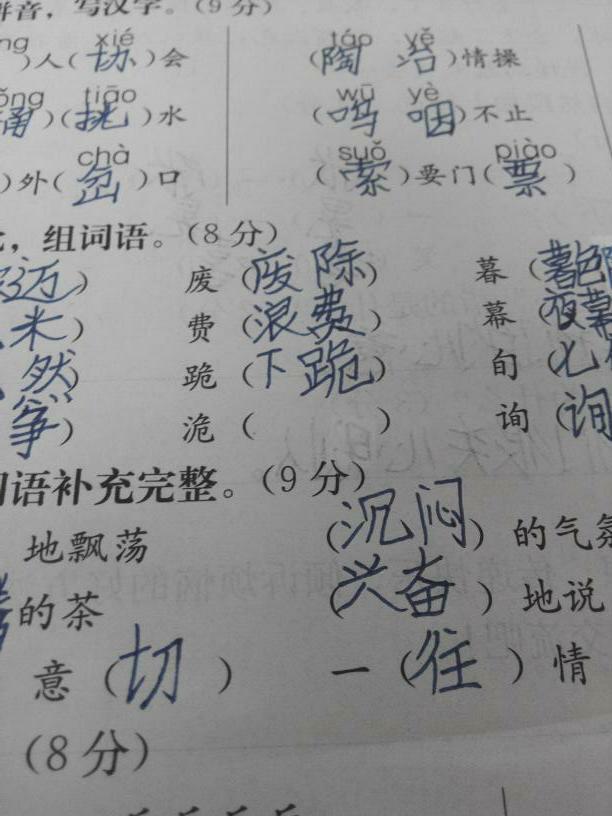 拼音，写汉字。（9分）
ng xié táo yě
）人（协）会 （陶冶）情操
ǒng tiāo wū yè
涌）（挑）水 （呜咽）不止
chà suǒ piào
）外（岔）口 （索）要门（票）
，组词语。（8分）
迈） 废（废除） 暮（暮色
米） 费（浪费） 幕（夜幕
然） 跪（下跪） 旬（七旬
筝） 诡（ ） 询（询
词语补充完整。（9分）
地飘荡 （沉闷）的气氛
的茶 （兴奋）地说
意（切） 一（往）情
（8分）